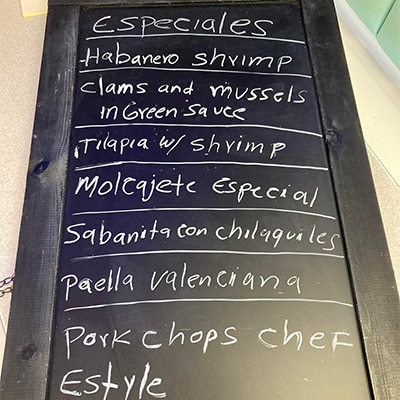 Especiales
Habanero shrimp
clams and mussels
in Green sauce
Tilapia w/ shrimp
Molcajete Especial
Sabanita con chilaquiles
Paella valenciana
Pork chops chef
Estyle